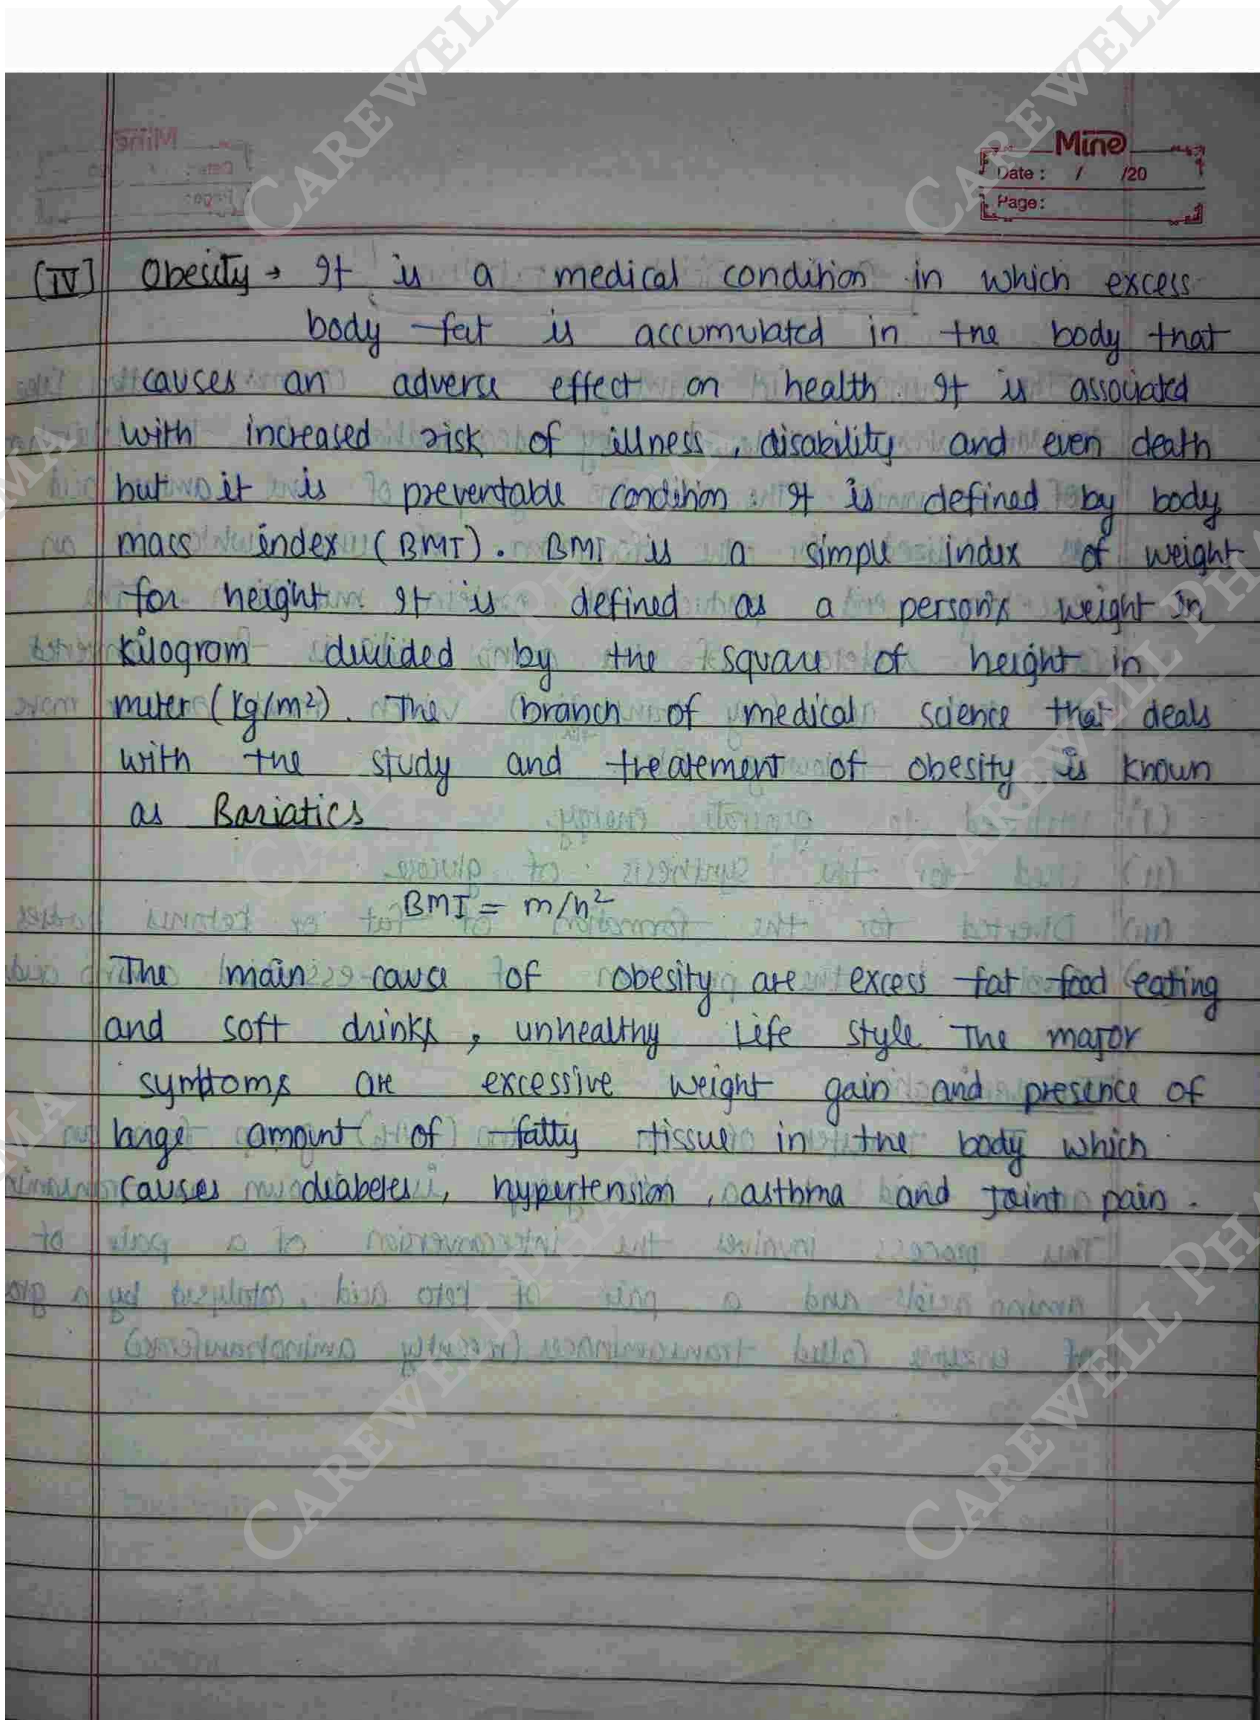 Mine
Date : / /20
Page:
(IV) Obesity → It is a medical condition in which excess
body fat is accumulated in the body that
causes an adverse effect on health. It is associated
with increased risk of illness, disability and even death
but it is preventable condition. It is defined by body
mass index (BMI). BMI is a simple index of weight
for height. It is defined as a person's weight in
kilogram devided by the square of height in
meter (kg/m²). The branch of medical science that deals
with the study and treatement of obesity is known
as Bariatics
BMI = m/h²
The main cause of obesity are excess fat food eating
and soft drinks, unhealthy Life style. The major
symptoms are excessive weight gain and presence of
large amount of fatty tissue in the body which
causes diabetes, hypertension, asthma and joint pain.
CAREWELL PHARMA